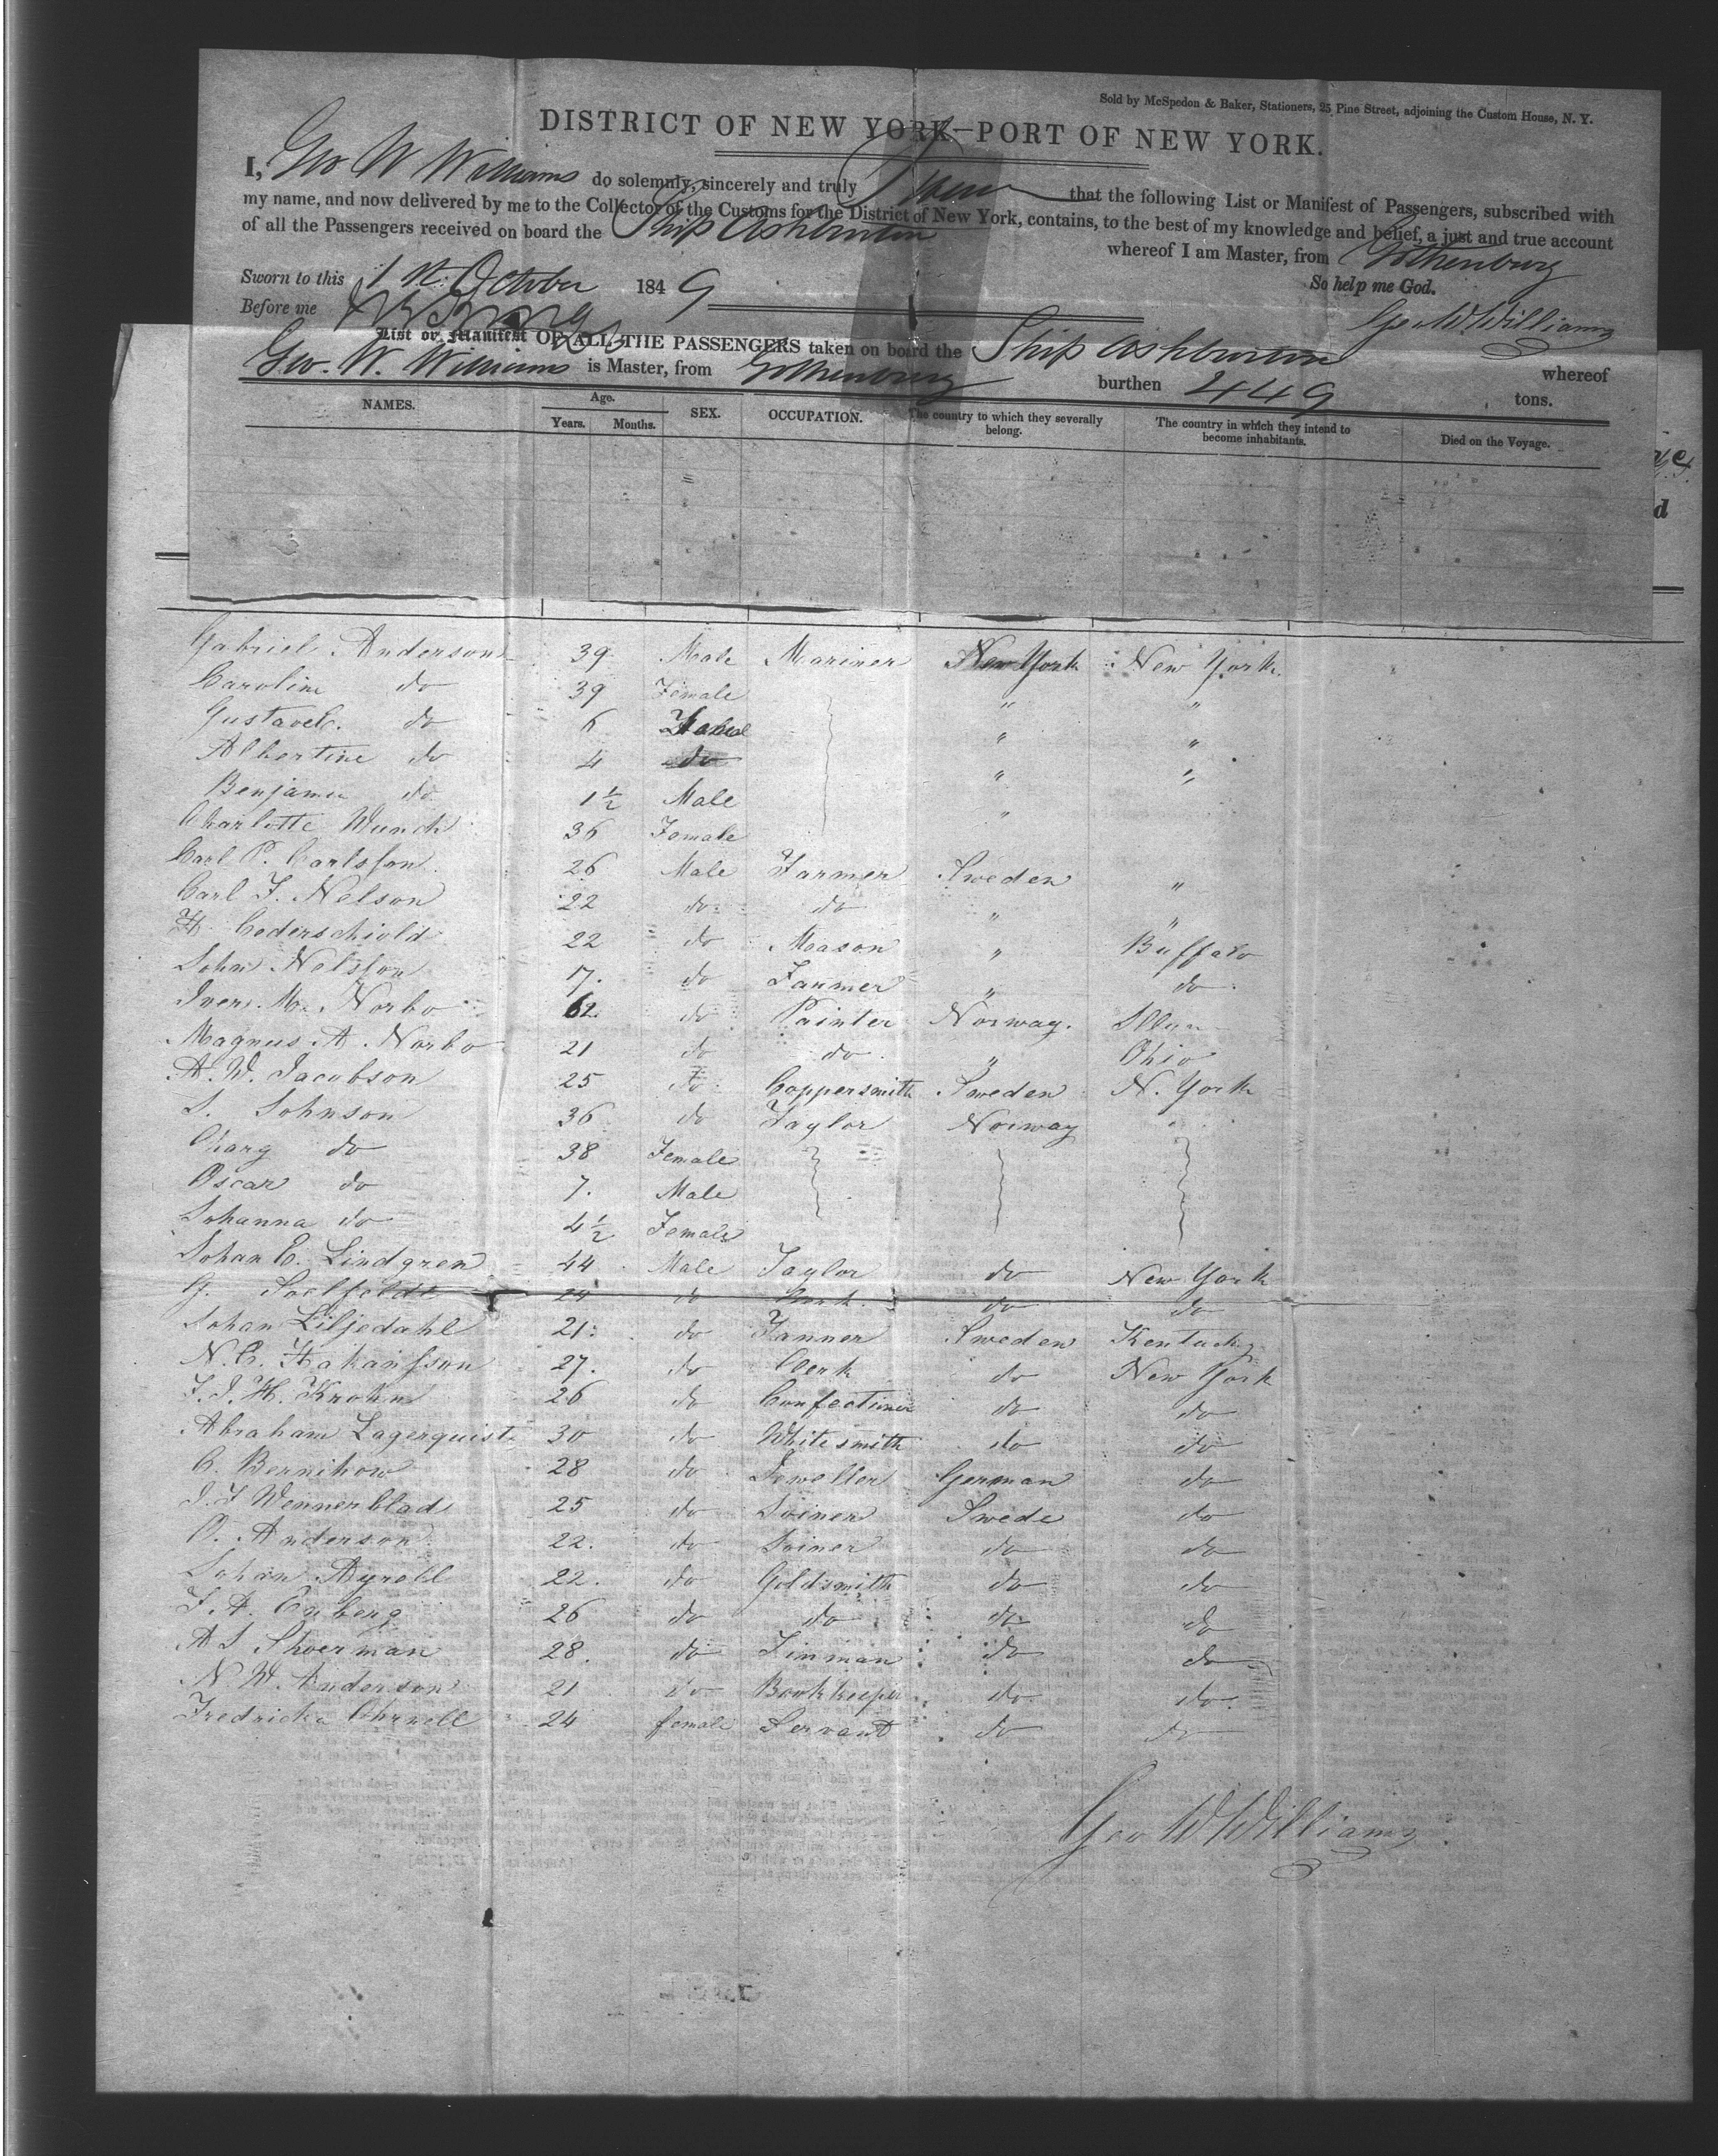 Sold by McSpedon & Baker, Stationers, 25 Pine Street, adjoining the Custom House, N. Y.
DISTRICT OF NEW YORK—PORT OF NEW YORK.
I, Geo W Williams do solemnly, sincerely and truly Swear that the following List or Manifest of Passengers, subscribed with
my name, and now delivered by me to the Collector of the Customs for the District of New York, contains, to the best of my knowledge and belief, a just and true account
of all the Passengers received on board the Ship Ashburton whereof I am Master, from Gothenburg
Sworn to this 1st October 1849 So help me God.
Before me Geo W Williams
List or Manifest OF ALL THE PASSENGERS taken on board the Ship Ashburton whereof
Geo. W. Williams is Master, from Gothenburg burthen 449 tons.
NAMES. Age. Years. Months. SEX. OCCUPATION. The country to which they severally belong. The country in which they intend to become inhabitants. Died on the Voyage.
Gabriel Anderson 39 Male Mariner New York New York
Caroline do 39 Female " "
Gustave C. do 6 " "
Albertine do 4 do " "
Benjamin do 1½ Male "
Charlotte Wunch 36 Female
Carl P. Carlsson 26 Male Farmer Sweden "
Carl F. Nelson 22 do do " "
H. Cederschiold 22 do Mason " Buffalo
John Nelsson 17. do Farmer " do
Iver M. Norbo 62 do Painter Norway.
Magnus A. Norbo 21 do do " Ohio
A. W. Jacobson 25 do Coppersmith Sweden N. York
S. Johnson 36 do Taylor Norway "
do 38 Female
Oscar do 7. Male
Johanna do 4½ Female
Johan E. Lindgren 44 Male Taylor do New York
G. 24 do Clerk. do do
Johan Liljedahl 21. do Tanner Sweden Kentucky
N. C. Hakansson 27. do Clerk do New York
F. J. H. Krohn 26 do Confectioner do do
Abraham Lagerquist 30 do Whitesmith do do
C. Bernihow 28 do Jeweller German do
J. F Wennerblad 25 do Joiner Swede do
O. Anderson 22. do Joiner do do
Johan Ayrell 22. do Goldsmith do do
F. A. Enberg 26 do do do do
A S Shoerman 28. do Tinman do do
N. W. Anderson 21 do Bookkeeper do do
Fredricka 24 female Servant do do
Geo W Williams